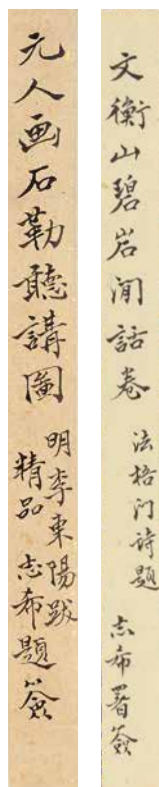 文衡山碧岩闲话卷
法梧门诗题
志希署签
元人画石勒聽講圖
明李東陽跋
精品
志希題签